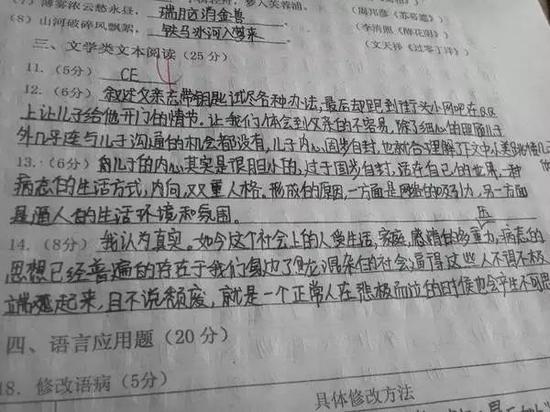 (7) 薄雾浓云愁永昼，瑞脑消金兽。
(李清照《醉花阴》)
(8) 山河破碎风飘絮， 铁马冰河入梦来
(文天祥《过零丁洋》)
三、文学类文本阅读（25分）
11.（6分） CE
12.（6分） 叙述父亲忘带钥匙，试尽各种办法，最后却跑到街头小网吧在QQ
上让儿子给他开门的情节。让我们体会到父亲的不容易，除了细心的照顾儿子
外几乎连与儿子沟通的机会都没有，儿子内心固步自封，也就合理解
13.（6分） 儿子的内心其实是很胆小的，过于固步自封，活在自己的世界，一种
病态的生活方式，内向，双重人格。形成的原因，一方面是网络的吸引力，另一方面
是逼人的生活环境和氛围。
14.（8分） 我认为真实。如今这个社会上的人受生活，家庭，感情的多重压力，病态的
思想已经普遍的存在于我们身边了，鱼龙混杂的社会逼得这些人不得不极
端起来，且不说颓废，就是一个正常人在悲极而泣的时候也会产生不可思
四、语言应用题（20分）
18. 修改语病（5分）
具体修改方法